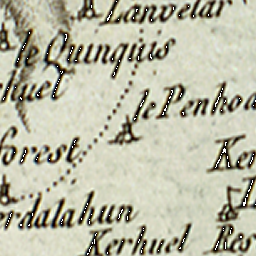 Lanvelar
le Quinquis
huel
le Penhoa
forest
Ker
erdalahun
Kerhuel
Res